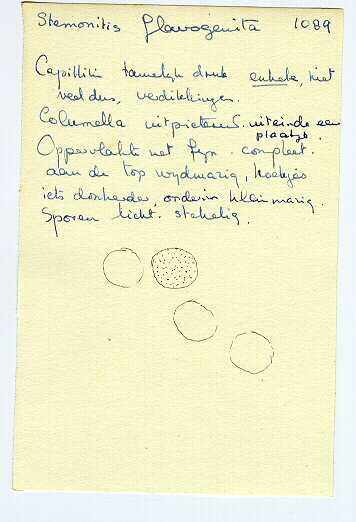 Stemonitis flavogenita 1089
Capillitium tamelijk druk enkele, niet
veel dus, verdikkingen.
Columella uitpieterend. uiteinde een
plaatje.
Oppervlakte net fijn. compleet.
aan de top wijdmazig, hoekjes
iets donkerder, onderin kleinmazig.
Sporen licht stekelig.